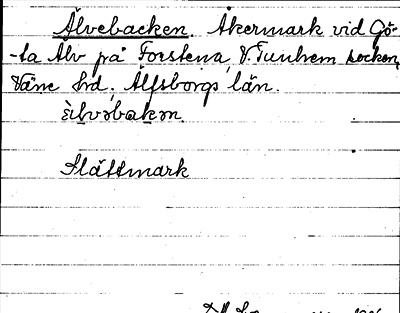 Älvebacken. Åkermark vid Gö-
-ta Älv på Forstena, V. Tunhem socken,
Väne hd. Älfsborgs län.
älvəbakən.
Slättmark